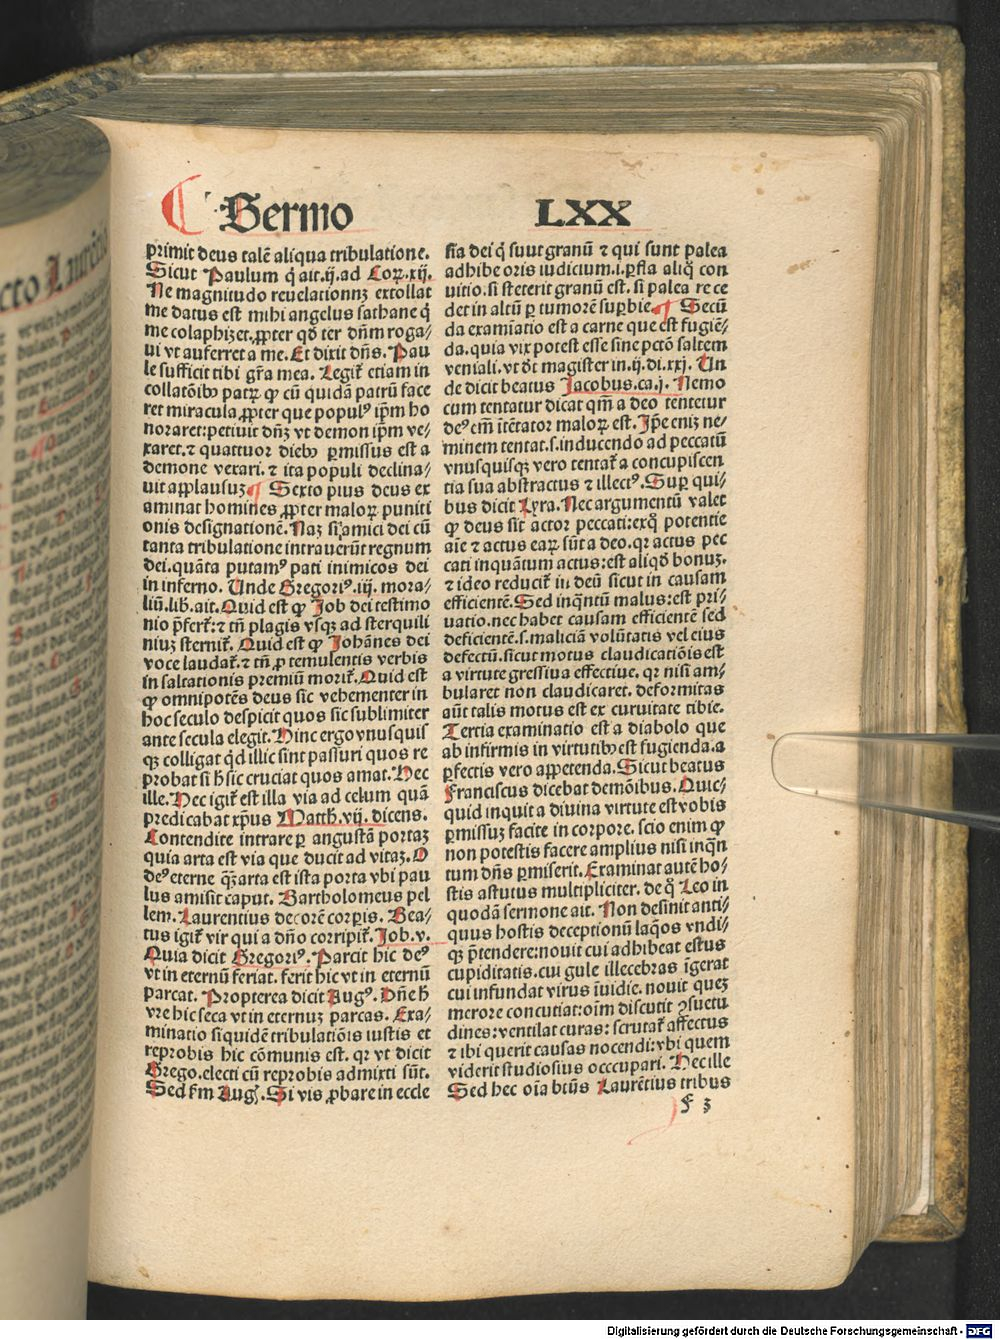 Sermo LXX
primit deus talē aliqua tribulatione.
Sicut Paulum q̇ ait.ij.ad Coꝝ.xij.
Ne magnitudo reuelationuꝫ extollat
me datus est mihi angelus sathane q̇
me colaphizet.ꝓpter qḋ ter dn̄m roga/
ui vt auferret a me. Et dixit dn̄s. Pau
le sufficit tibi gr̄a mea. Legit̄ etiam in
collatōibꝰ patꝝ ꝙ cū quidā patrū face
ret miracula ꝓpter que popul⁹ ip̄m ho
noraret:petiuit dn̄ꝫ vt demon ip̄m ve/
xaret.⁊ quattuor diebꝰ ꝑmissus est a
demone vexari.⁊ ita populi declina/
uit applausuꝫ ¶ Sexto pius deus ex
aminat homines ꝓpter maloꝝ puniti
onis designationē. Naꝫ si amici dei cū
tanta tribulatione intrauerūt regnum
dei.quāta putam⁹ pati inimicos dei
in inferno. Unde Gregori⁹.iij. mora/
liū.lib̄.ait. Quid est ꝙ Job dei testimo
nio p̄fert̄:⁊ tn̄ plagis vsqꝫ ad sterquili
niuꝫ sternit̄. Quid est ꝙ Johānes dei
voce laudat̄.⁊ tn̄ ꝓ temulentis verbis
in saltationis premiū morit̄. Quid est
ꝙ omnipotēs deus sic vehementer in
hoc seculo despicit quos sic sublimiter
ante secula elegit. Hinc ergo vnusquis
qꝫ colligat qḋ illic sint passuri quos re
probat si h̄ sic cruciat quos amat. Hec
ille. Hec igit̄ est illa via ad celum quā
predicabat xp̄us Matth̄.vij. dicens.
Contendite intrare ꝑ angustā portaꝫ
quia arta est via que ducit ad vitaꝫ. O
de⁹ eterne q̄ꝫ arta est ista porta vbi pau
lus amisit caput. Bartholomeus pel
lem. Laurentius decorē corꝑis. Bea/
tus igit̄ vir qui a dn̄o corripit̄. Job.v.
Quia dicit Gregori⁹. Parcit hic de⁹
vt in eternū feriat. ferit hic vt in eternū
parcat. Propterea dicit Aug⁹. Dn̄e h̄
vre hic seca vt in eternuꝫ parcas. Exa/
minatio siquidē tribulatiōis iustis et
reprobis hic cōmunis est. qꝛ vt dicit
Grego.electi cū reprobis admixti sūt.
Sed ẜm Aug̉. Si vis ꝓbare in eccle
sia dei q̇ suut granū ⁊ qui sunt palea
adhibe oris iudicium.i.ꝑfla aliq̄ con
uitio.si steterit granū est. si palea rece
det in altū ꝑ tumorē suꝑbie. ¶ Secū
da examīatio est a carne que est fugiē/
da.quia vix potest esse sine pctō saltem
veniali.vt dt̄ magister in.ij.di.xxj. Un
de dicit beatus Jacobus.ca.j. Nemo
cum tentatur dicat qm̄ a deo tentetur
de⁹ em̄ ītētator maloꝝ est. Ip̄e eniꝫ ne/
minem tentat.s.inducendo ad peccatū
vnusquisqꝫ vero tentat̄ a concupiscen
tia sua abstractus ⁊ illect⁹. Suꝑ qui/
bus dicit Lyra. Nec argumentū valet
ꝙ deus sit actor peccati:exq̊ potentie
aīe ⁊ actus eaꝝ sūt a deo. qꝛ actus pec
cati inquātum actus:est aliqḋ bonuꝫ.
⁊ ideo reducit̄ in deū sicut in causam
efficientē. Sed inq̄ntū malus:est pri/
uatio.nec habet causam efficientē sed
deficientē.s.maliciā volūtatis vel eius
defectū.sicut motus claudicatiōis est
a virtute gressiua effectiue. qꝛ nisi am/
bularet non claudicaret. deformitas
aūt talis motus est ex curuitate tibie.
Tercia examinatio est a diabolo que
ab infirmis in virtutibꝰ est fugienda.a
ꝑfectis vero appetenda. Sicut beatus
Franciscus dicebat demōibus. Quic/
quid inquit a diuina virtute est vobis
ꝑmissuꝫ facite in corpore. scio enim ꝙ
non potestis facere amplius nisi inq̄n
tum dn̄s ꝑmiserit. Examinat autē ho/
stis astutus multipliciter. de q̊ Leo in
quodā sermone ait. Non desinit anti/
quus hostis deceptionū laq̊os vndi/
qꝫ p̄tendere:nouit cui adhibeat estus
cupiditatis.cui gule illecebras īgerat
cui infundat virus īuidie. nouit queꝫ
merore concutiat:oīm discutit ꝯsuetu
dines:ventilat curas:scrutat̄ affectus
⁊ ibi querit causas nocendi:vbi quem
viderit studiosius occcupari. Hec ille
Sed hec oīa bt̄ūs Laurētius tribus
f 3
Digitalisierung gefördert durch die Deutsche Forschungsgemeinschaft - DFG